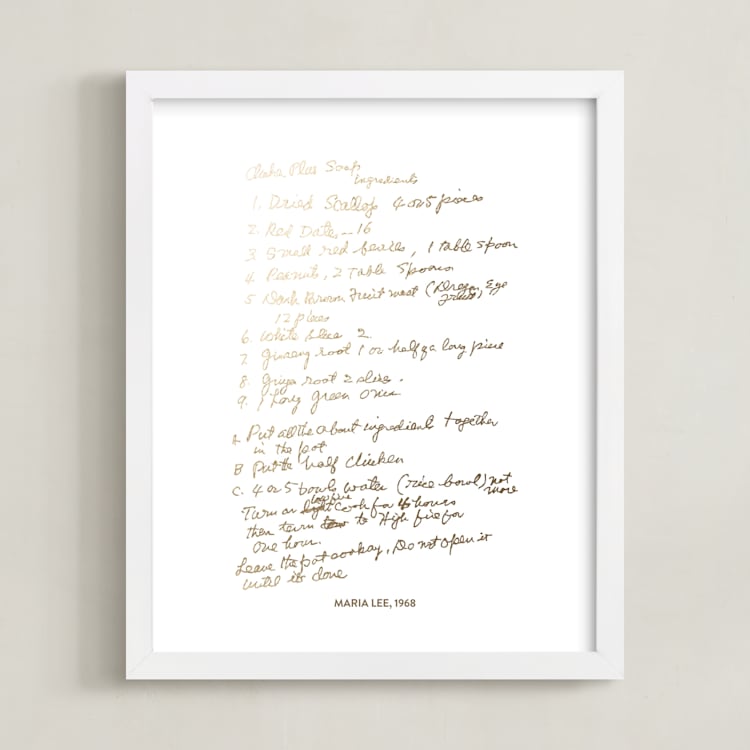 Soup
Ingredients
1. Dried Scallop 4 or 5 pieces
2. Red Dates - 16
3. Small red berries, 1 table spoon
4. Peanuts, 2 Table Spoons
5. Dark Brown Fruit meat (Dragon Eye
fruit)
12 pieces
6. White 2
7. Ginseng root 1 or half of a long piece
8. Ginger root 2 slice.
9. 1 Long green Onion
A. Put all the about ingredient together
in the pot
B Put the half Chicken
C. 4 or 5 bowls water (rice bowl) not
more
Turn on low fire Cook for 4 hours
then turn to High fire for
One hour.
Leave the pot Do not open it
until it's done
MARIA LEE, 1968